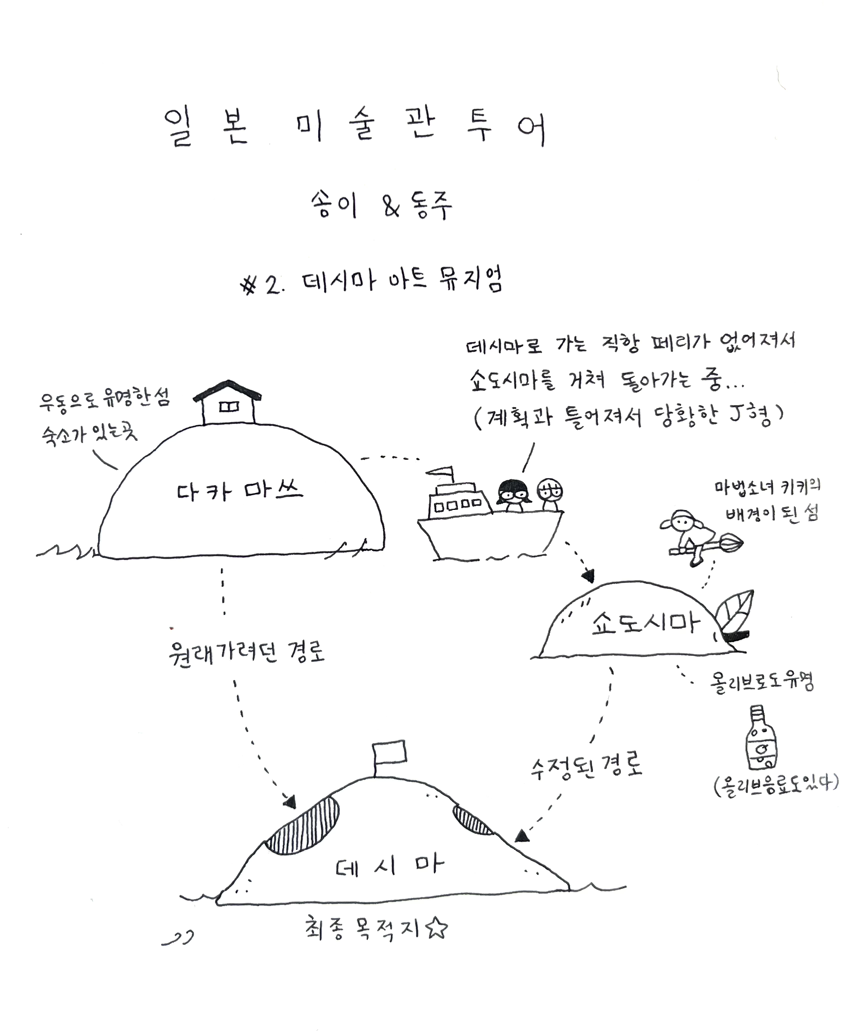 일본 미술관 투어
송이 & 동주
#2. 데시마 아트 뮤지엄
데시마로 가는 직항 페리가 없어져서
쇼도시마를 거쳐 돌아가는 중...
(계획과 틀어져서 당황한 J형)
우동으로 유명한 섬
숙소가 있는곳
다카마쓰
마법소녀 키키의
배경이 된 섬
쇼도시마
원래가려던 경로
올리브로도유명
수정된 경로
(올리브음료도있다)
데시마
최종목적지☆